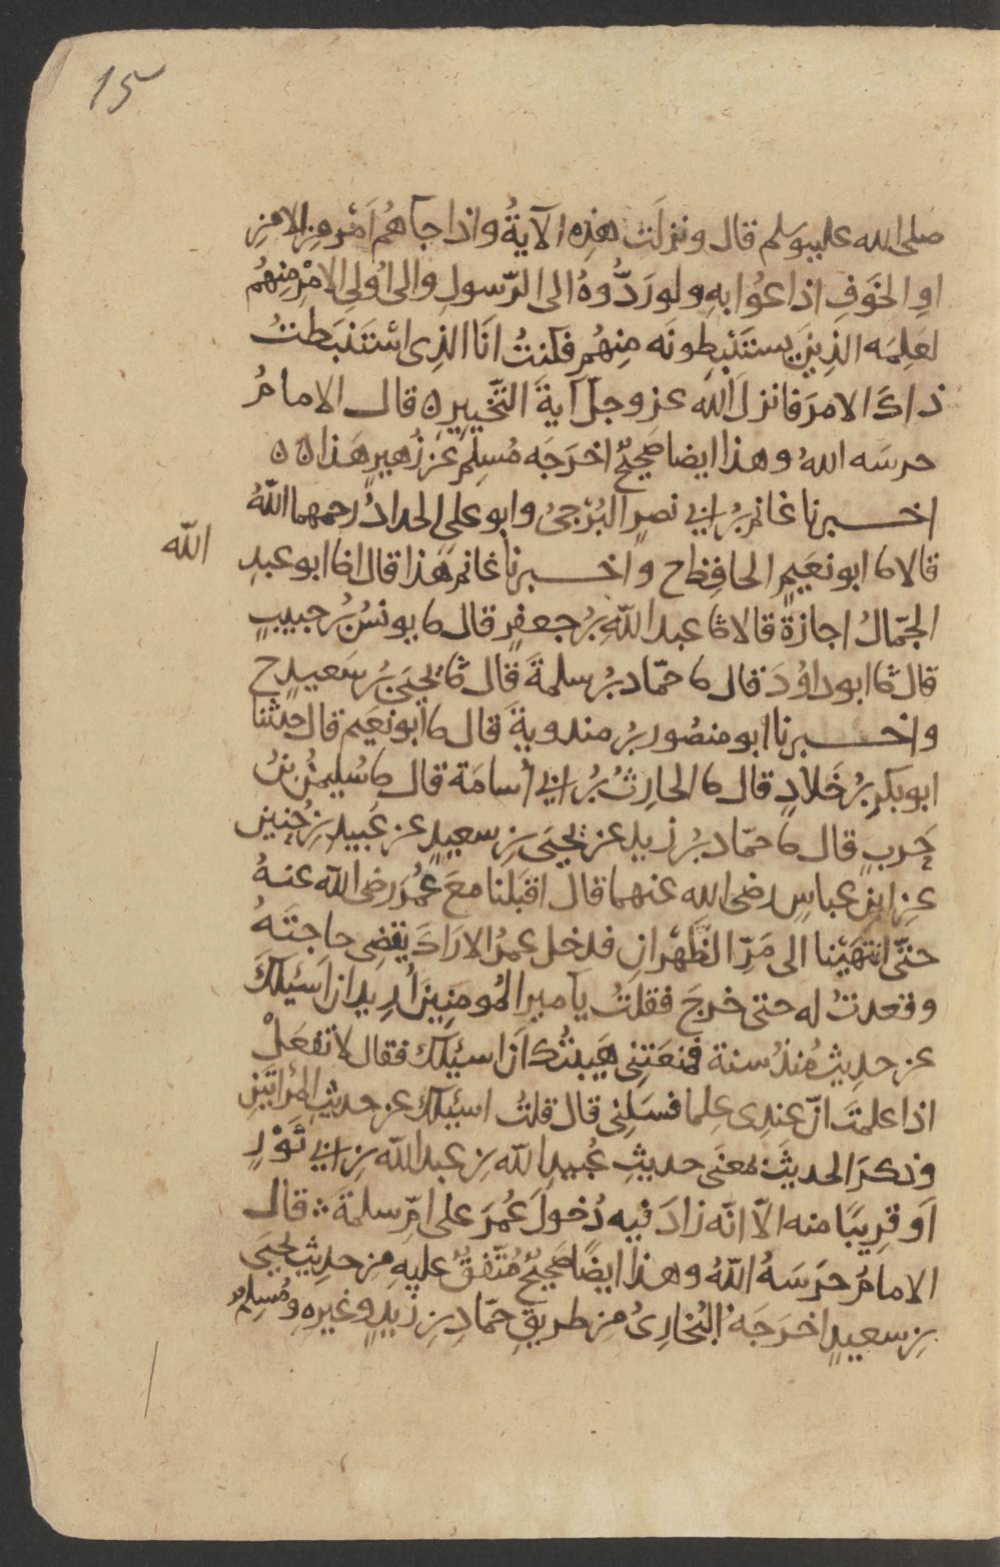 15
صلى الله عليه وسلم قال ونزلت هذه الآية واذا جآهم امر من الامن
او الخوف اذاعوا به ولو ردوه الى الرسول والى اولي الامر منهم
لعلمه الذين يستنبطونه منهم فكنت انا الذي استنبطت
ذاك الامر فانزل الله عز وجل آية التخيير ه قال الامام
حرسه الله وهذا ايضا صحيح اخرجه مسلم عن زهير هذا ه ه
اخبرنا غانم بن ابي نصر البرجي وابو علي الحداد رحمهما الله
قالا ثا ابو نعيم الحافظ ح واخبرنا غانم هذا قال انا ابو عبد الله
الجمال اجازة قالا ثا عبد الله بن جعفر قال ثا يونس بن حبيب
قال ثا ابو داود قال ثا حماد بن سلمة قال ثا يحيى بن سعيد ح
واخبرنا ابو منصور بن مندوية قال ثا ابو نعيم قال حدثنا
ابو بكر بن خلاد قال ثا الحارث بن ابي أسامة قال ثا سليمن بن
حرب قال ثا حماد بن زيد عن يحيى بن سعيد عن عبيد بن حنين
عن ابن عباس رضي الله عنهما قال اقبلنا مع عمر رضي الله عنه
حتى انتهينا الى مر الظهران فدخل عمر الاراك يقضي حاجته
وقعدت له حتى خرج فقلت يا امير المومنين أريد ان اسئلك
عن حديث منذ سنة فمنعتني هيبتك أن اسئلك فقال لا تفعل
اذا علمت ان عندي علما فسلني قال قلت اسئلك عن حديث المراتين
وذكر الحديث بمعنى حديث عبيد الله بن عبد الله بن ابي ثور
او قريبا منه الا انه زاد فيه دخول عمر على ام سلمة ∴ قال
الامام حرسه الله وهذا ايضا صحيح متفق عليه من حديث يحيى
بن سعيد اخرجه البخاري من طريق حماد بن زيد وغيره ومسلم